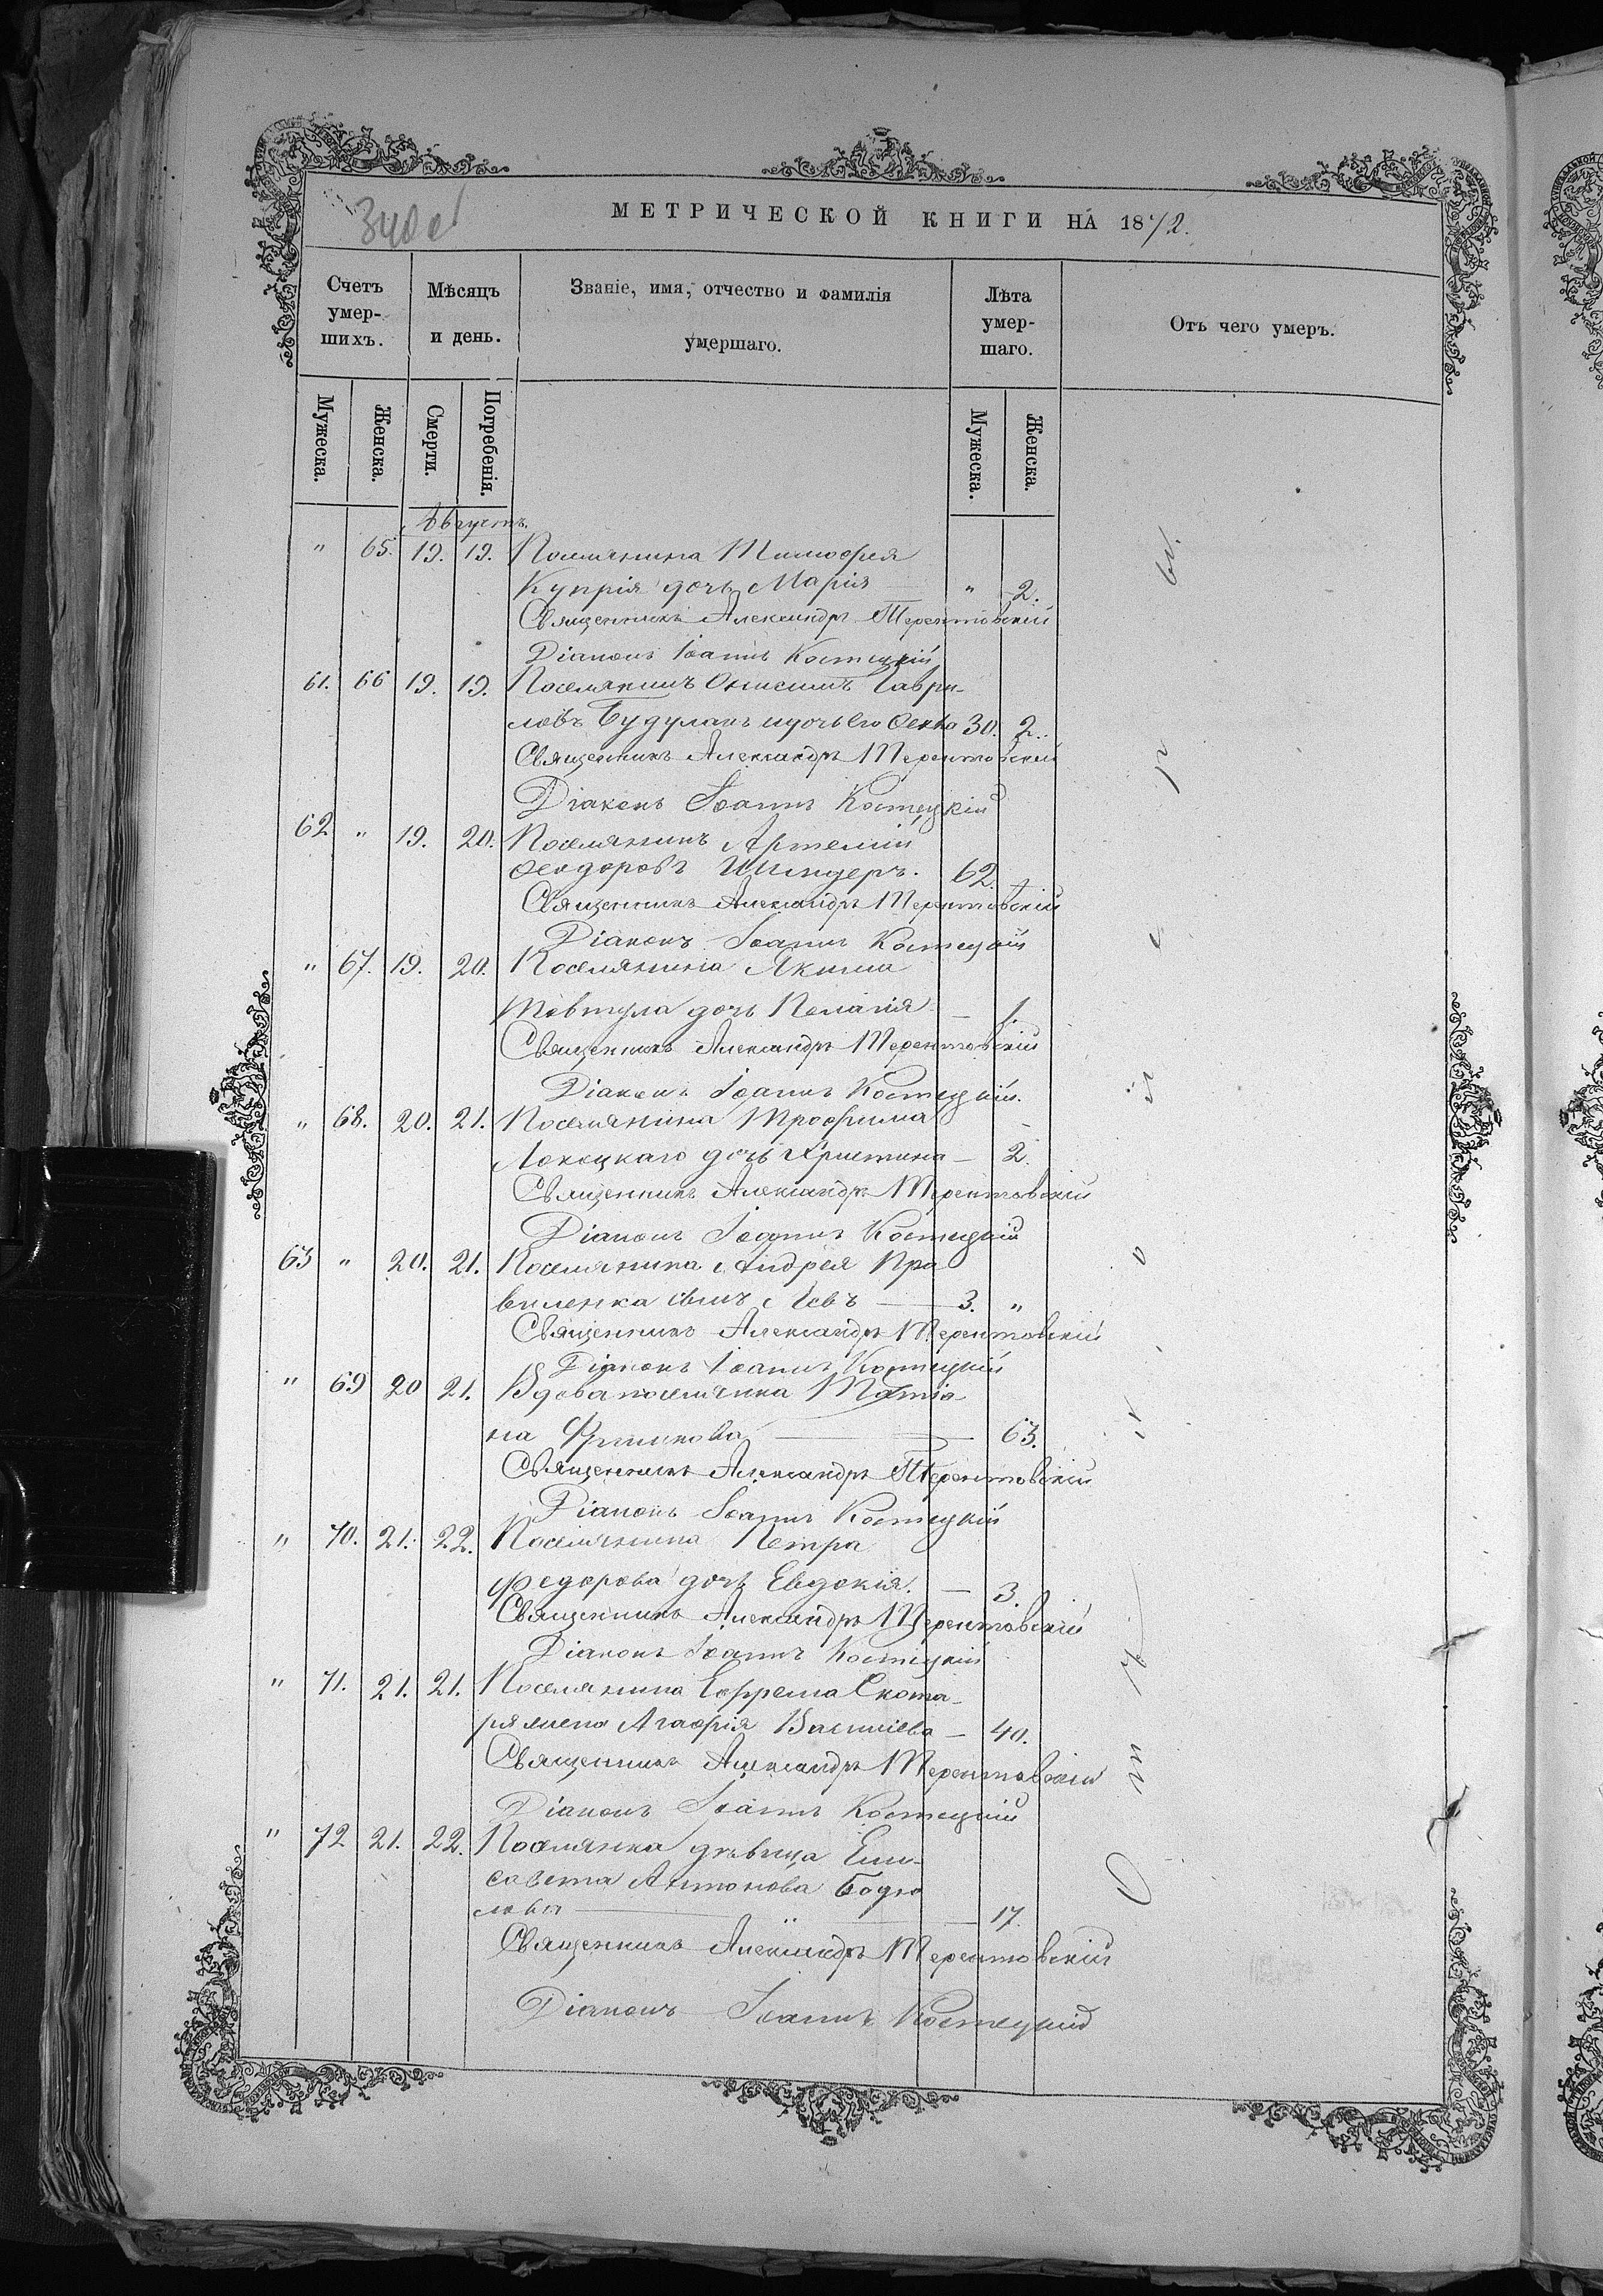 МЕТРИЧЕСКОЙ КНИГИ НА 1872.
Счетъ умер-шихъ.
Мѣсяцъ и день.
Званіе, имя, отчество и фамилія умершаго.
Лѣта умер-шаго.
Отъ чего умеръ.
Мужеска. Женска. Смерти. Погребенія. Мужеска. Женска.
Августъ.
" 65. 19. 19. Поселянина Тимофея
Купрія дочь Марія — " 2.
Священникъ Александръ Терентовскій
Діаконъ Іоаннъ Костецкій
61. 66 19. 19. Поселянинъ Онисимъ Гаври-
ловъ Будуланъ и дочь его 30. 2.
Священникъ Александръ Терентовскій
Діаконъ Іоаннъ Костецкій
62 " 19. 20. Поселянинъ Артемій
Ѳеодоровъ 62.
Священникъ Александръ Терентовскій
Діаконъ Іоаннъ Костецкій
" 67. 19. 20. Поселянина Якима
Товтула дочь Пелагія — 1.
Священникъ Александръ Терентовскій
Діаконъ Іоаннъ Костецкій.
" 68. 20. 21. Поселянина Трофима
дочь Христина — 2.
Священникъ Александръ Терентовскій
Діаконъ Іоаннъ Костецкій
63 " 20. 21. Поселянина Андрея Пра
виленка сынъ — 3. "
Священникъ Александръ Терентовскій
Діаконъ Іоаннъ Костецкій
" 69 20 21. Вдова поселянка Татіа
на — 63.
Священникъ Александръ Терентовскій
Діаконъ Іоаннъ Костецкій
" 70. 21. 22. Поселянина Петра
Федорова дочь Евдокія. — 3.
Священникъ Александръ Терентовскій
Діаконъ Іоаннъ Костецкій
" 71. 21. 21. Поселянина Ефрема Скота-
ря жена Агафія Васильева — 40.
Священникъ Александръ Терентовскій
Діаконъ Іоаннъ Костецкій
" 72 21. 22. Поселянка дѣвица Ели-
савета Антонова Бодю
лова — 17.
Священникъ Александръ Терентовскій
Діаконъ Іоаннъ Костецкій